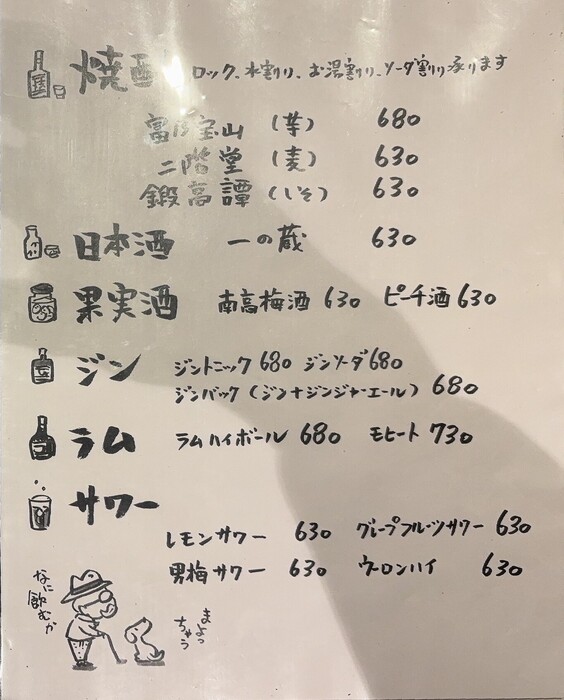 焼酎 ロック、水割り、お湯割り、ソーダ割り承ります
富乃宝山 (芋) 680
二階堂 (麦) 630
鍛高譚 (しそ) 630
日本酒 一の蔵 630
果実酒 南高梅酒 630 ピーチ酒 630
ジン ジントニック 680 ジンソーダ 680
ジンバック (ジン+ジンジャーエール) 680
ラム ラムハイボール 680 モヒート 730
サワー
レモンサワー 630 グレープフルーツサワー 630
男梅サワー 630 ウーロンハイ 630
なに
飲むか
まよっ
ちゃう